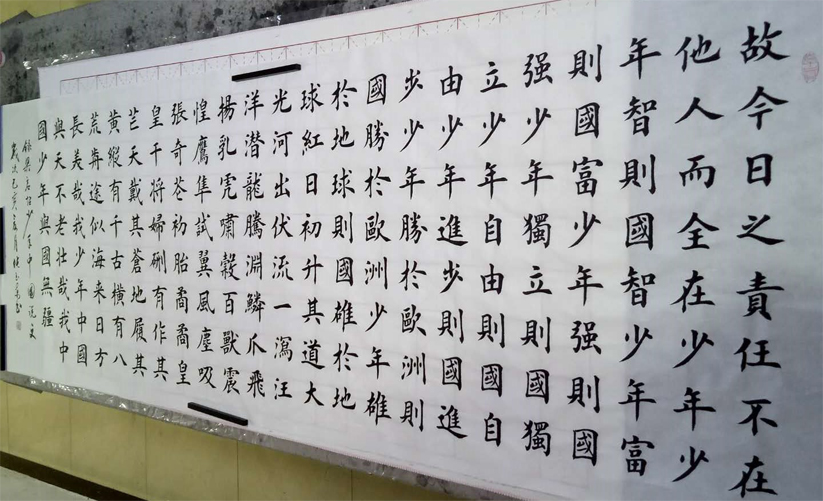 故今日之責任不在
他人而全在少年少
年智則國智少年富
則國富少年强則國
强少年獨立則國獨
立少年自由則國自
由少年進步則國進
步少年勝於歐洲則
國勝於歐洲少年雄
於地球則國雄於地
球紅日初升其道大
光河出伏流一瀉汪
洋潛龍騰淵鱗爪飛
揚乳虎嘯穀百獸震
惶鷹隼試翼風塵吸
張奇花初胎矞矞皇
皇干將硎有作其
芒天戴其蒼地履其
黃縱有千古橫有八
荒前途似海来日方
長美哉我少年中國
與天不老壯哉我中
國少年與國無疆
錄梁啟超少年中國說文
歲次己亥月书